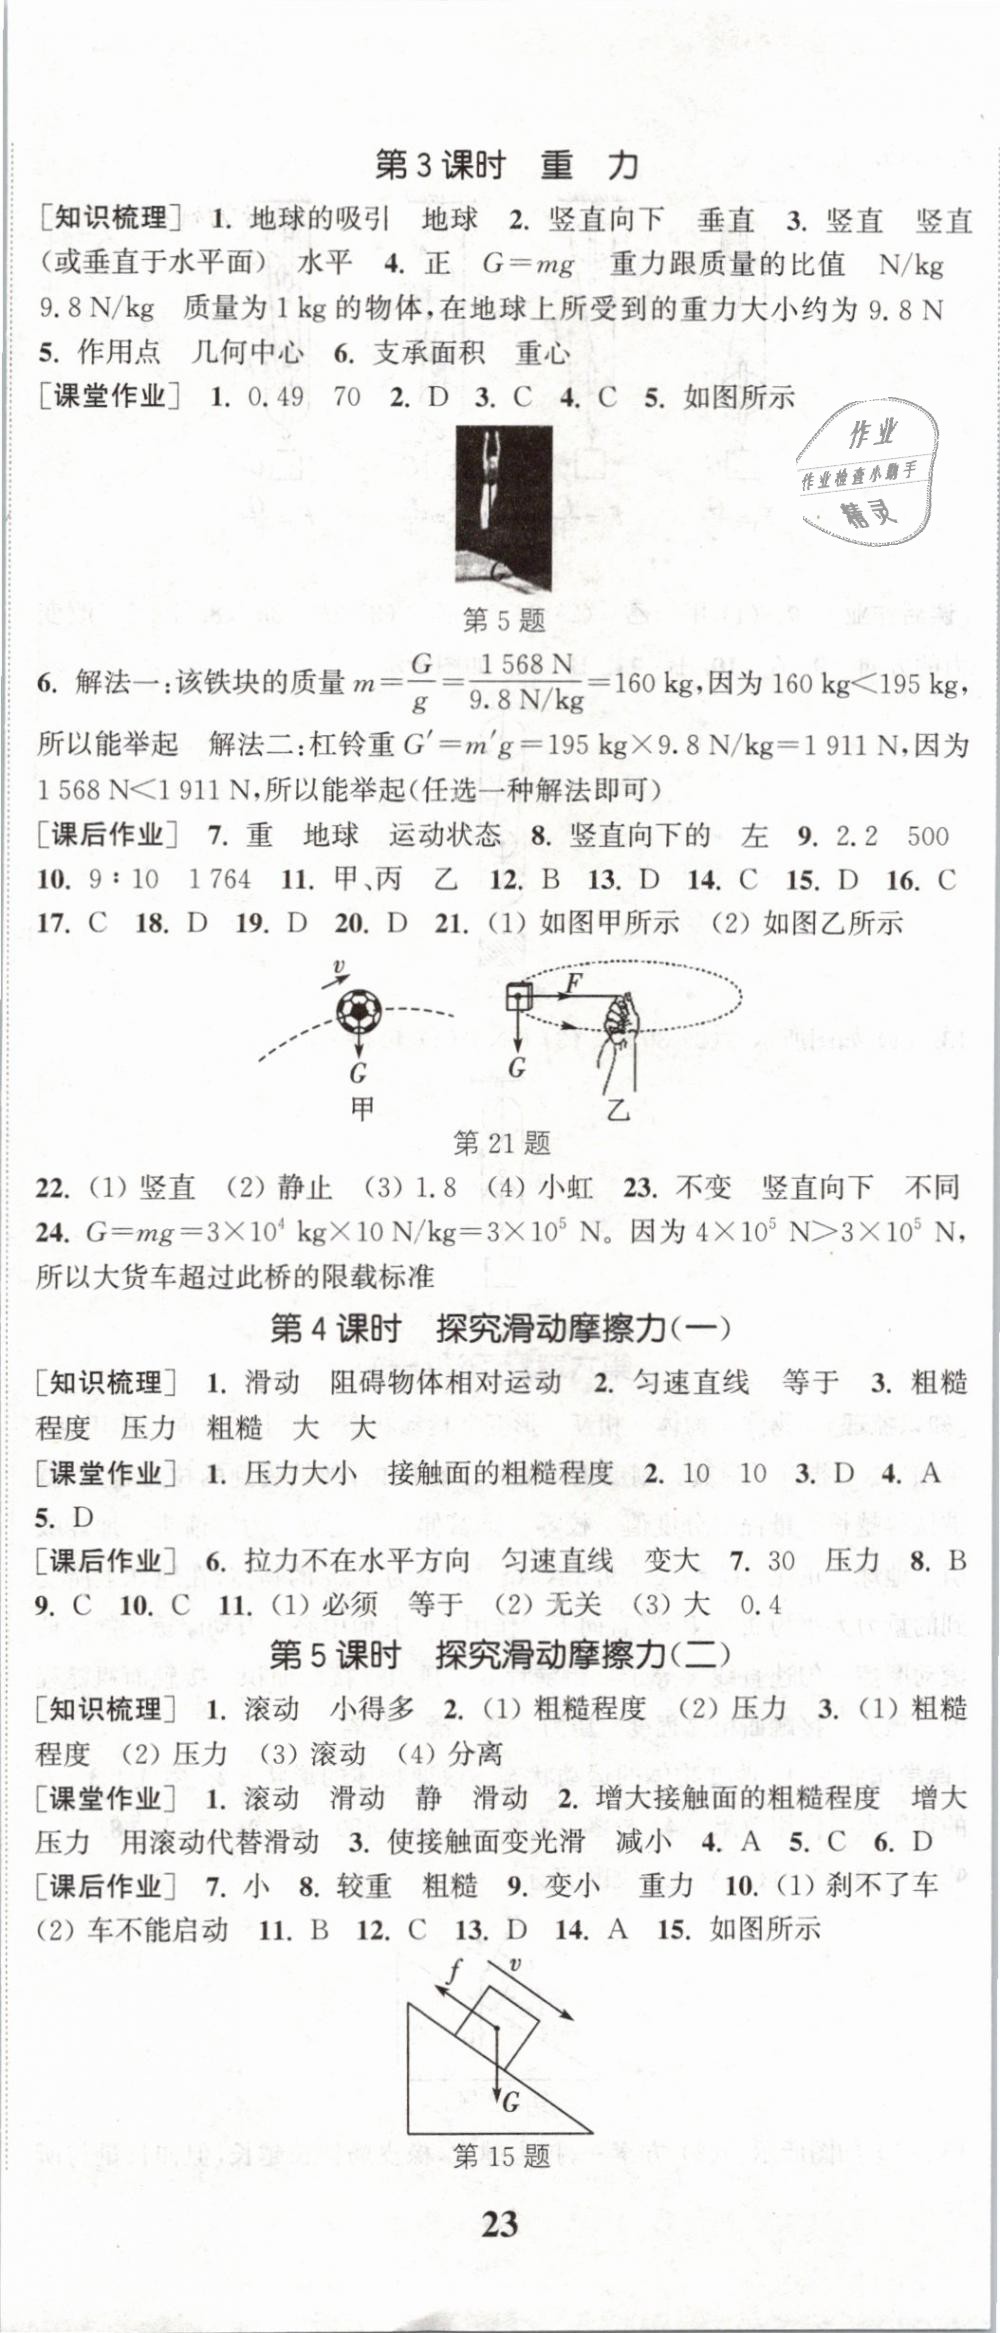 第3课时　重　力
[知识梳理]　1. 地球的吸引　地球　2. 竖直向下　垂直　3. 竖直　竖直
(或垂直于水平面)　水平　4. 正　G=mg　重力跟质量的比值　N/kg
9.8 N/kg　质量为1 kg的物体,在地球上所受到的重力大小约为9.8 N
5. 作用点　几何中心　6. 支承面积　重心
[课堂作业]　1. 0.49　70　2. D　3. C　4. C　5. 如图所示
作业
作业检查小助手
精灵
G
第5题
6. 解法一:该铁块的质量m=G/g=1 568 N/9.8 N/kg=160 kg,因为160 kg<195 kg,
所以能举起　解法二:杠铃重G′=m′g=195 kg×9.8 N/kg=1 911 N,因为
1 568 N<1 911 N,所以能举起(任选一种解法即可)
[课后作业]　7. 重　地球　运动状态　8. 竖直向下的　左　9. 2.2　500
10. 9∶10　1 764　11. 甲、丙　乙　12. B　13. D　14. C　15. D　16. C
17. C　18. D　19. D　20. D　21. (1) 如图甲所示　(2) 如图乙所示
v
F
G
G
甲
乙
第21题
22. (1) 竖直　(2) 静止　(3) 1.8　(4) 小虹　23. 不变　竖直向下　不同
24. G=mg=3×10⁴ kg×10 N/kg=3×10⁵ N。因为4×10⁵ N>3×10⁵ N,
所以大货车超过此桥的限载标准
第4课时　探究滑动摩擦力(一)
[知识梳理]　1. 滑动　阻碍物体相对运动　2. 匀速直线　等于　3. 粗糙
程度　压力　粗糙　大　大
[课堂作业]　1. 压力大小　接触面的粗糙程度　2. 10　10　3. D　4. A
5. D
[课后作业]　6. 拉力不在水平方向　匀速直线　变大　7. 30　压力　8. B
9. C　10. C　11. (1) 必须　等于　(2) 无关　(3) 大　0.4
第5课时　探究滑动摩擦力(二)
[知识梳理]　1. 滚动　小得多　2. (1) 粗糙程度　(2) 压力　3. (1) 粗糙
程度　(2) 压力　(3) 滚动　(4) 分离
[课堂作业]　1. 滚动　滑动　静　滑动　2. 增大接触面的粗糙程度　增大
压力　用滚动代替滑动　3. 使接触面变光滑　减小　4. A　5. C　6. D
[课后作业]　7. 小　8. 较重　粗糙　9. 变小　重力　10. (1) 刹不了车
(2) 车不能启动　11. B　12. C　13. D　14. A　15. 如图所示
f
v
G
第15题
23